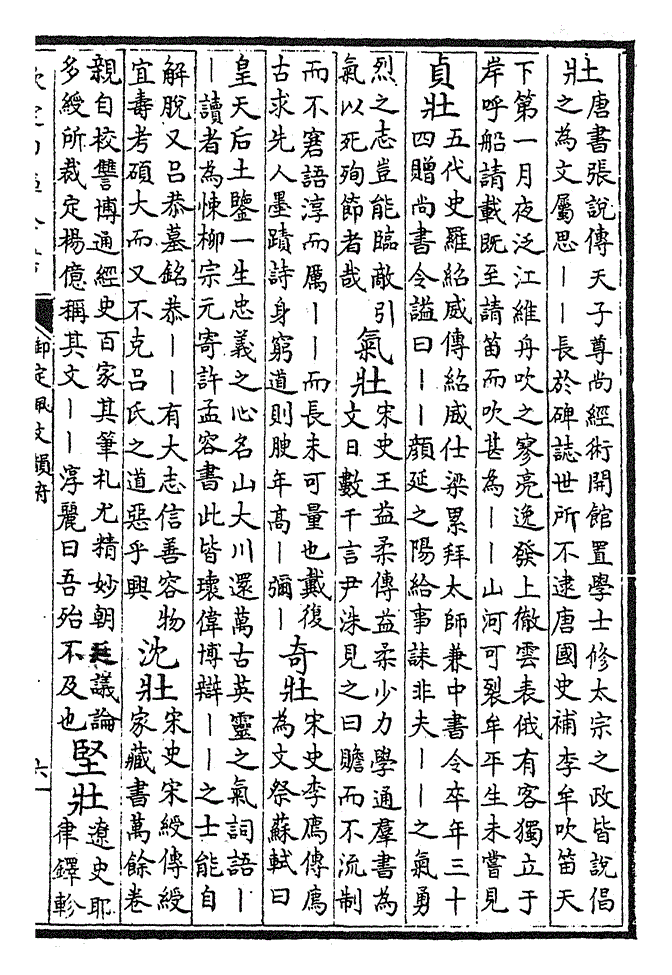 壯唐書張說傳天子尊尚經術開館置學士修太宗之政皆說倡
之為文屬思丨丨長於碑誌世所不逮唐國史補李牟吹笛天
下第一月夜泛江維舟吹之寥亮逸發上徹雲表俄有客獨立于
岸呼船請載既至請笛而吹甚為丨丨山河可裂牟平生未嘗見
貞壯五代史羅紹威傳紹威仕梁累拜太師兼中書令卒年三十
四贈尚書令謚曰丨丨顏延之陽給事誄非夫丨丨之氣勇
烈之志豈能臨敵引
氣以死殉節者哉
氣壯宋史王益柔傳益柔少力學通羣書為
文日數千言尹洙見之曰贍而不流制
而不窘語淳而厲丨丨而長未可量也戴復
古求先人墨蹟詩身窮道則腴年高丨彌丨
奇壯宋史李廌傳廌
為文祭蘇軾曰
皇天后土鑒一生忠義之心名山大川還萬古英靈之氣詞語丨
丨讀者為悚柳宗元寄許孟容書此皆瓌偉博辯丨丨之士能自
解脫又呂恭墓銘恭丨丨有大志信善容物
宜壽考碩大而又不克呂氏之道惡乎興
沈壯宋史宋綬傳綬
家藏書萬餘卷
親自校讐博通經史百家其筆札尤精妙朝廷議論
多綬所裁定楊億稱其文丨丨淳麗曰吾殆不及也
堅壯遼史耶
律鐸軫
御定佩文韻府